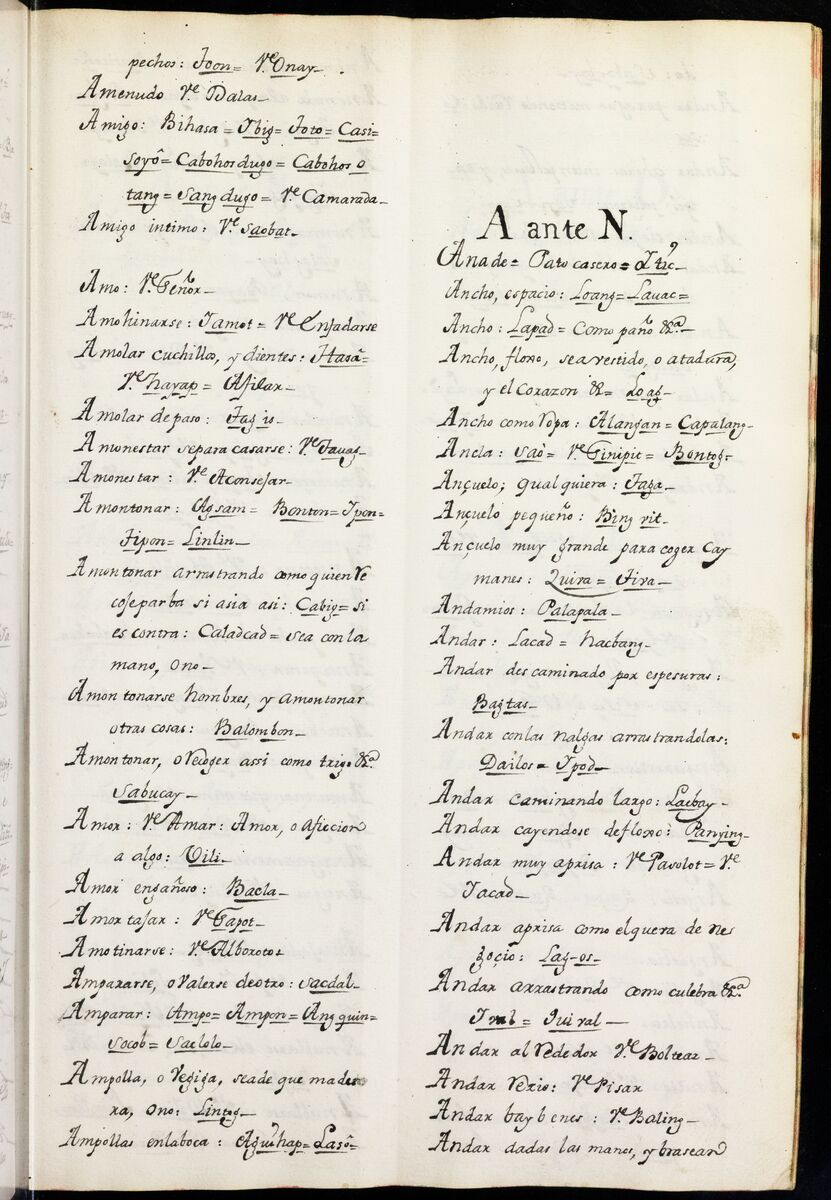 pechos: Joon= Ve Onay_
Amenudo Ve Dalas_
Amigo: Bihasa= Ybig= Joto= Casi=
soyô= Cabohos dugo= Cabohos o
tang= sang dugo= Ve Camarada_
Amigo intimo: Ve saobat_
Amo: Ve Señor_
Amohinarse: Jamot= Ve Enfadarse
Amolar cuchillos, y dientes:
Ve hayap= Afilar_
Amolar de paso: Jagis_
Amonestar separa casarse: Ve Tauag_
Amonestar: Ve Aconsejar_
Amontonar: Agsam= Bonton= Jpon=
Tipon= Linlin_
Amontonar arrastrando como quien Re
coje parba si asia asi: Cabig= si
es contra: Caladcad= sea con la
mano, o no_
Amontonarse hombres, y amontonar
otras cosas: Balombon_
Amontonar, o Recoger assi como trigo &a.
Sabucay_
Amor: Ve Amar: Amor, o aficion
a algo: Vili_
Amor engañoso: Bacla_
Amortajar: Ve Sapot_
Amotinarse: Ve Alborotos
Ampararse, o Valerse de otro: sacdal_
Amparar: Ampo= Ampon= Angquin=
Socob= Saclolo_
Ampolla, o Vegiga, sea de que made
ra, o no: Lintog_
Ampollas en la boca: = Lasô=
A ante N.
Anade= Pato casero= Ytic_
Ancho, espacio: Loang= Lauac=
Ancho: Lapad= como paño &a._
Ancho, floxo, sea vestido, o atadura,
y el corazon &= Loag_
Ancho como Ropa: Alangan= Capalang_
Ancla: saò= Ve Sinipit= Bontog_
Ançuelo; qualquiera: Taga_
Ançuelo pequeño: Bing vit_
Ançuelo muy grande para coger Cay
manes: Quira= Tira_
Andamios: Palapala_
Andar: Lacad= hacbang_
Andar descaminado por espesuras:
Bagtas_
Andar con las nalgas arrastrandolas:
Dailos= Ypod_
Andar caminando largo: Lacbay_
Andar cayendose de floxo: Panying_
Andar muy aprisa: Ve Pasolot= Ve
Tacad_
Andar aprisa como el quera de ne
goçio: Lag-os_
Andar arrastrando como culebra &a.
= Quiral_
Andar al Rededor Ve Boltear_
Andar Rezio: Ve Pisar
Andar baybenes: Ve Baling_
Andar dadas las manos, y brasean